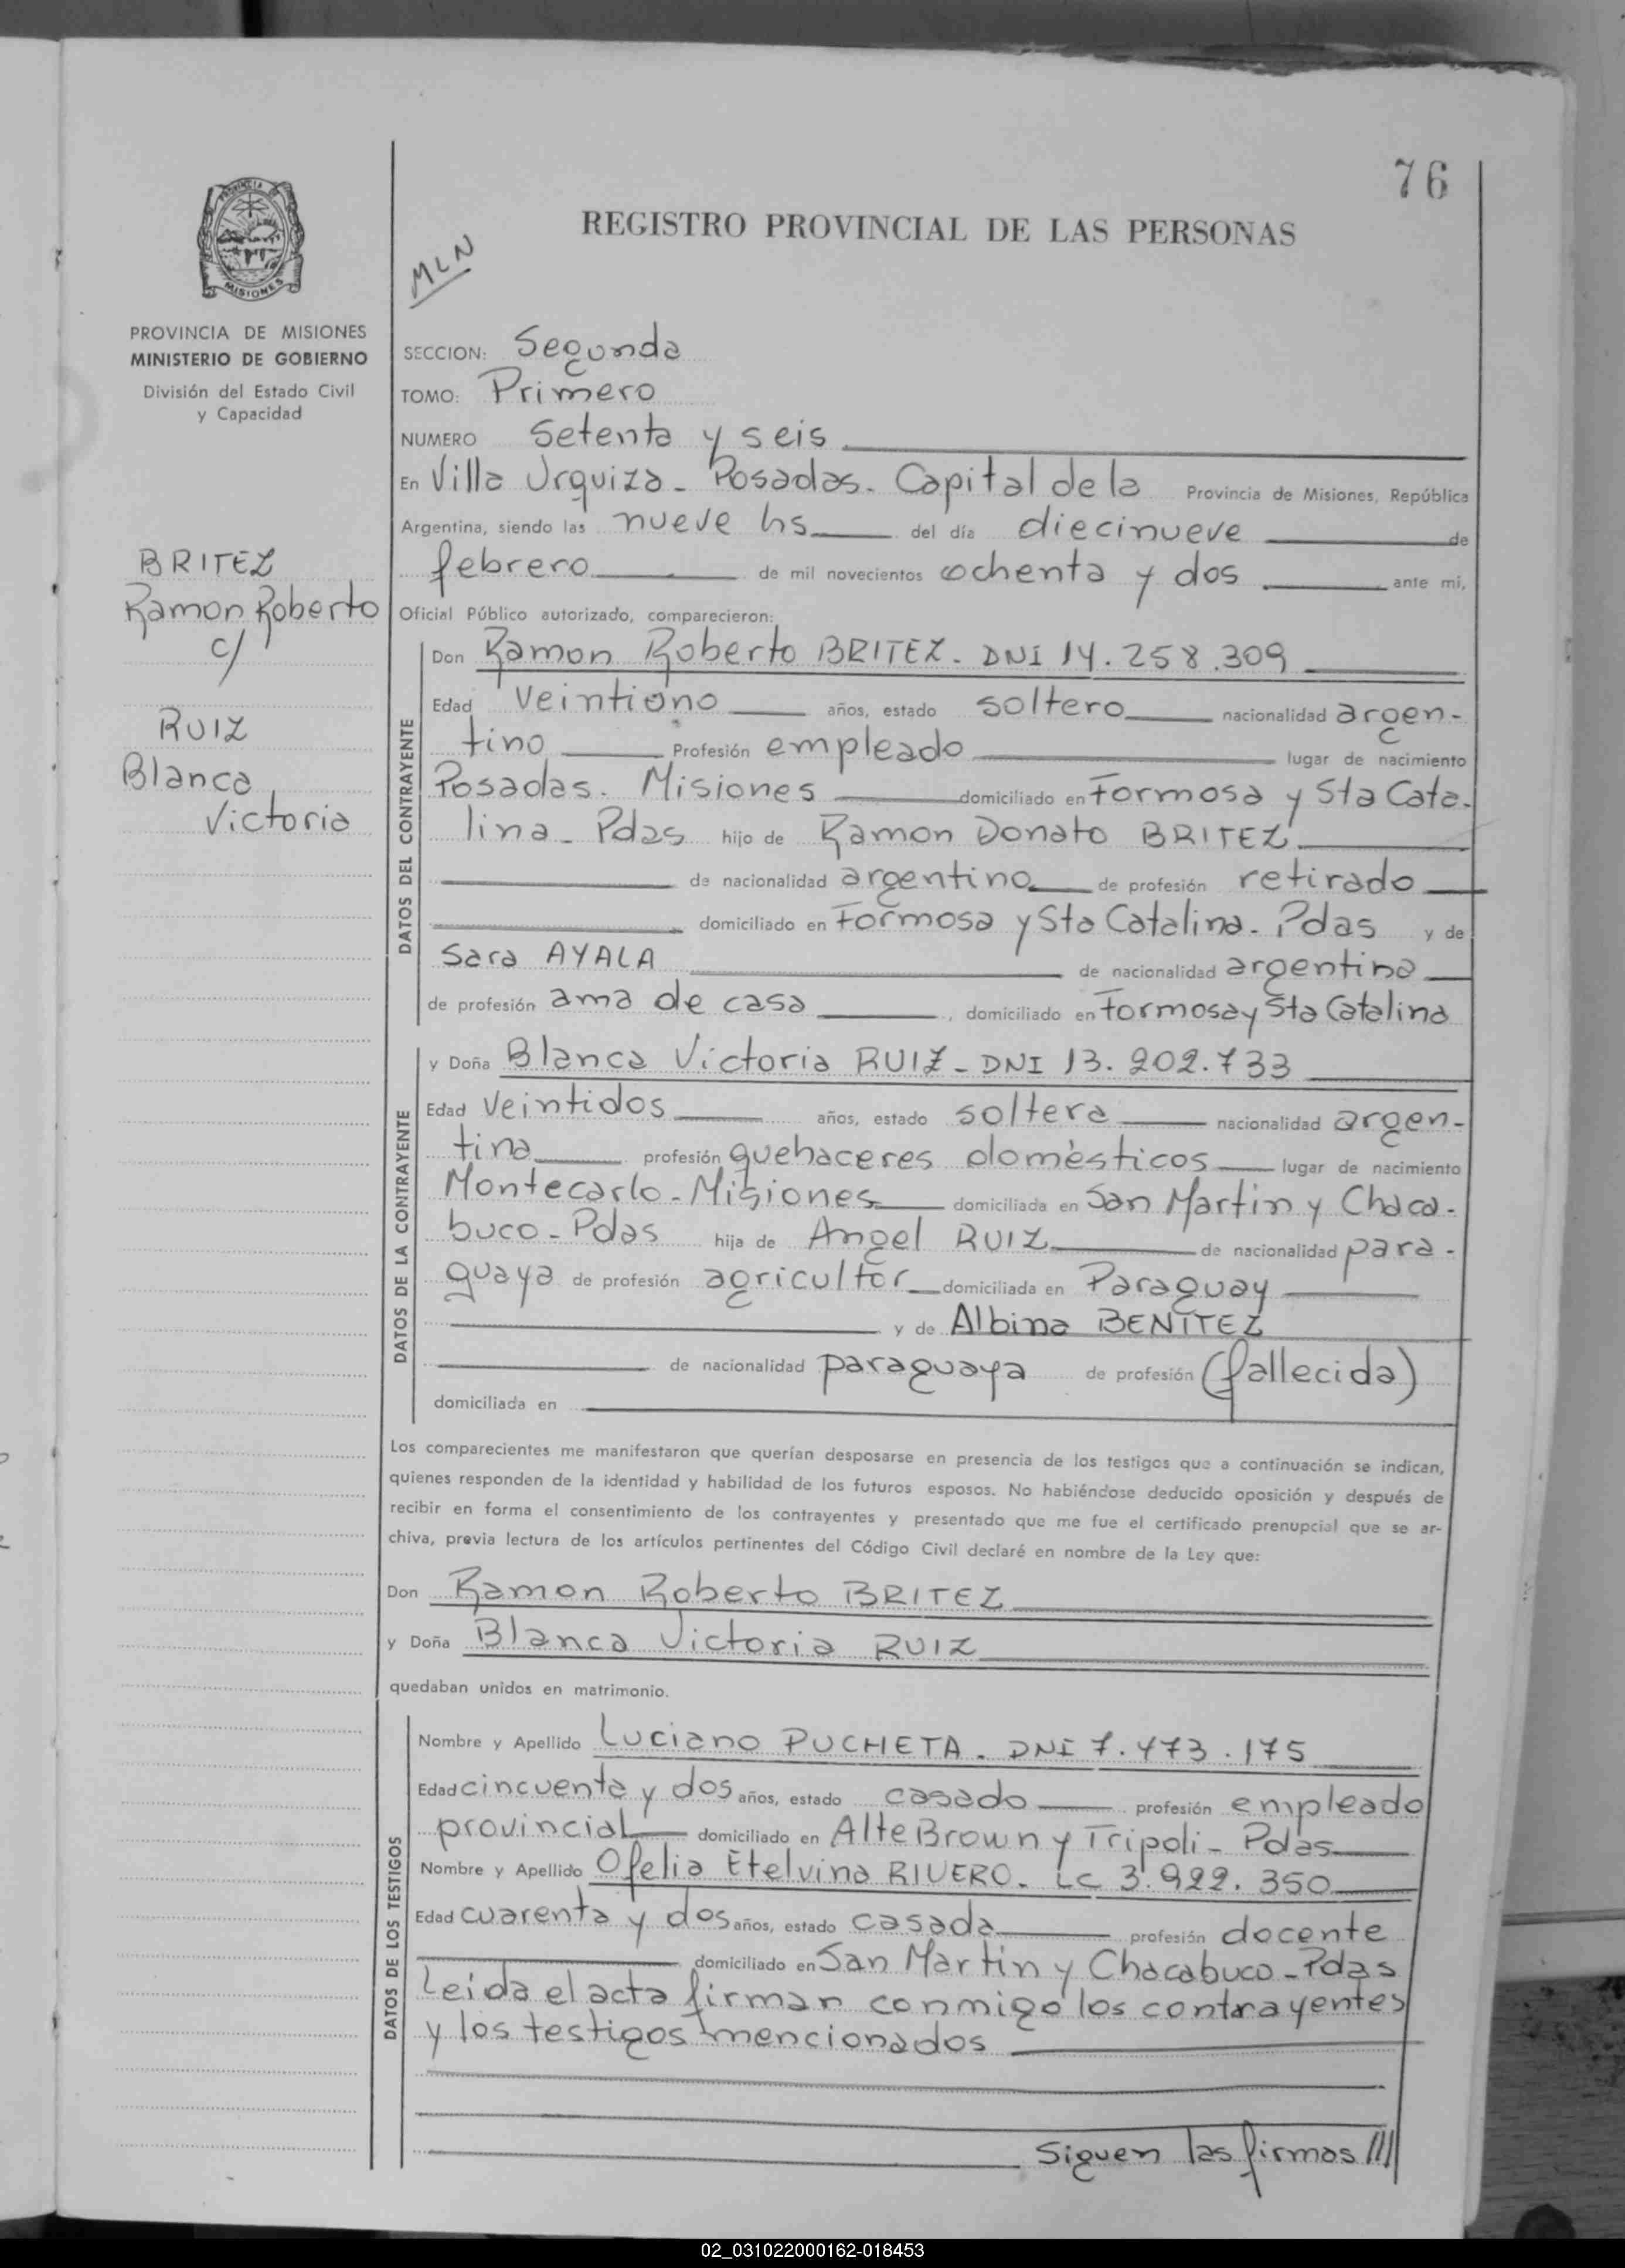 76
REGISTRO PROVINCIAL DE LAS PERSONAS
MLN
MISIONES
PROVINCIA DE MISIONES
MINISTERIO DE GOBIERNO
División del Estado Civil
y Capacidad
BRITEZ
Ramon Roberto
c/
RUIZ
Blanca
Victoria
SECCION: Segunda
TOMO: Primero
NUMERO Setenta y seis
En Villa Urquiza - Posadas - Capital de la Provincia de Misiones, República
Argentina, siendo las nueve hs del día diecinueve de
febrero de mil novecientos ochenta y dos ante mi,
Oficial Público autorizado, comparecieron:
DATOS DEL CONTRAYENTE
Don Ramon Roberto BRITEZ - DNI 14.258.309
Edad veintiuno años, estado soltero nacionalidad argen-
tino Profesión empleado lugar de nacimiento
Posadas. Misiones domiciliado en Formosa y Sta Cata-
lina - Pdas hijo de Ramon Donato BRITEZ
de nacionalidad argentino de profesión retirado
domiciliado en Formosa y Sta Catalina - Pdas y de
Sara AYALA de nacionalidad argentina
de profesión ama de casa, domiciliado en Formosa y Sta Catalina
DATOS DE LA CONTRAYENTE
y Doña Blanca Victoria RUIZ - DNI 13.202.733
Edad veintidos años, estado soltera nacionalidad argen-
tina profesión quehaceres domèsticos lugar de nacimiento
Montecarlo - Misiones domiciliada en San Martin y Chaca-
buco - Pdas hija de Angel RUIZ de nacionalidad para-
guaya de profesión agricultor domiciliada en Paraguay
y de Albina BENITEZ
de nacionalidad paraguaya de profesión (fallecida)
domiciliada en
Los comparecientes me manifestaron que querían desposarse en presencia de los testigos que a continuación se indican,
quienes responden de la identidad y habilidad de los futuros esposos. No habiéndose deducido oposición y después de
recibir en forma el consentimiento de los contrayentes y presentado que me fue el certificado prenupcial que se ar-
chiva, previa lectura de los artículos pertinentes del Código Civil declaré en nombre de la Ley que:
Don Ramon Roberto BRITEZ
y Doña Blanca Victoria RUIZ
quedaban unidos en matrimonio.
DATOS DE LOS TESTIGOS
Nombre y Apellido Luciano PUCHETA - DNI 7.473.175
Edad cincuenta y dos años, estado casado profesión empleado
provincial domiciliado en Alte Brown y Tripoli - Pdas
Nombre y Apellido Ofelia Etelvina RIVERO - LC 3.922.350
Edad cuarenta y dos años, estado casada profesión docente
domiciliado en San Martin y Chacabuco - Pdas
Leida el acta firman conmigo los contrayentes
y los testigos mencionados
Siguen las firmas ///
02_031022000162-018453